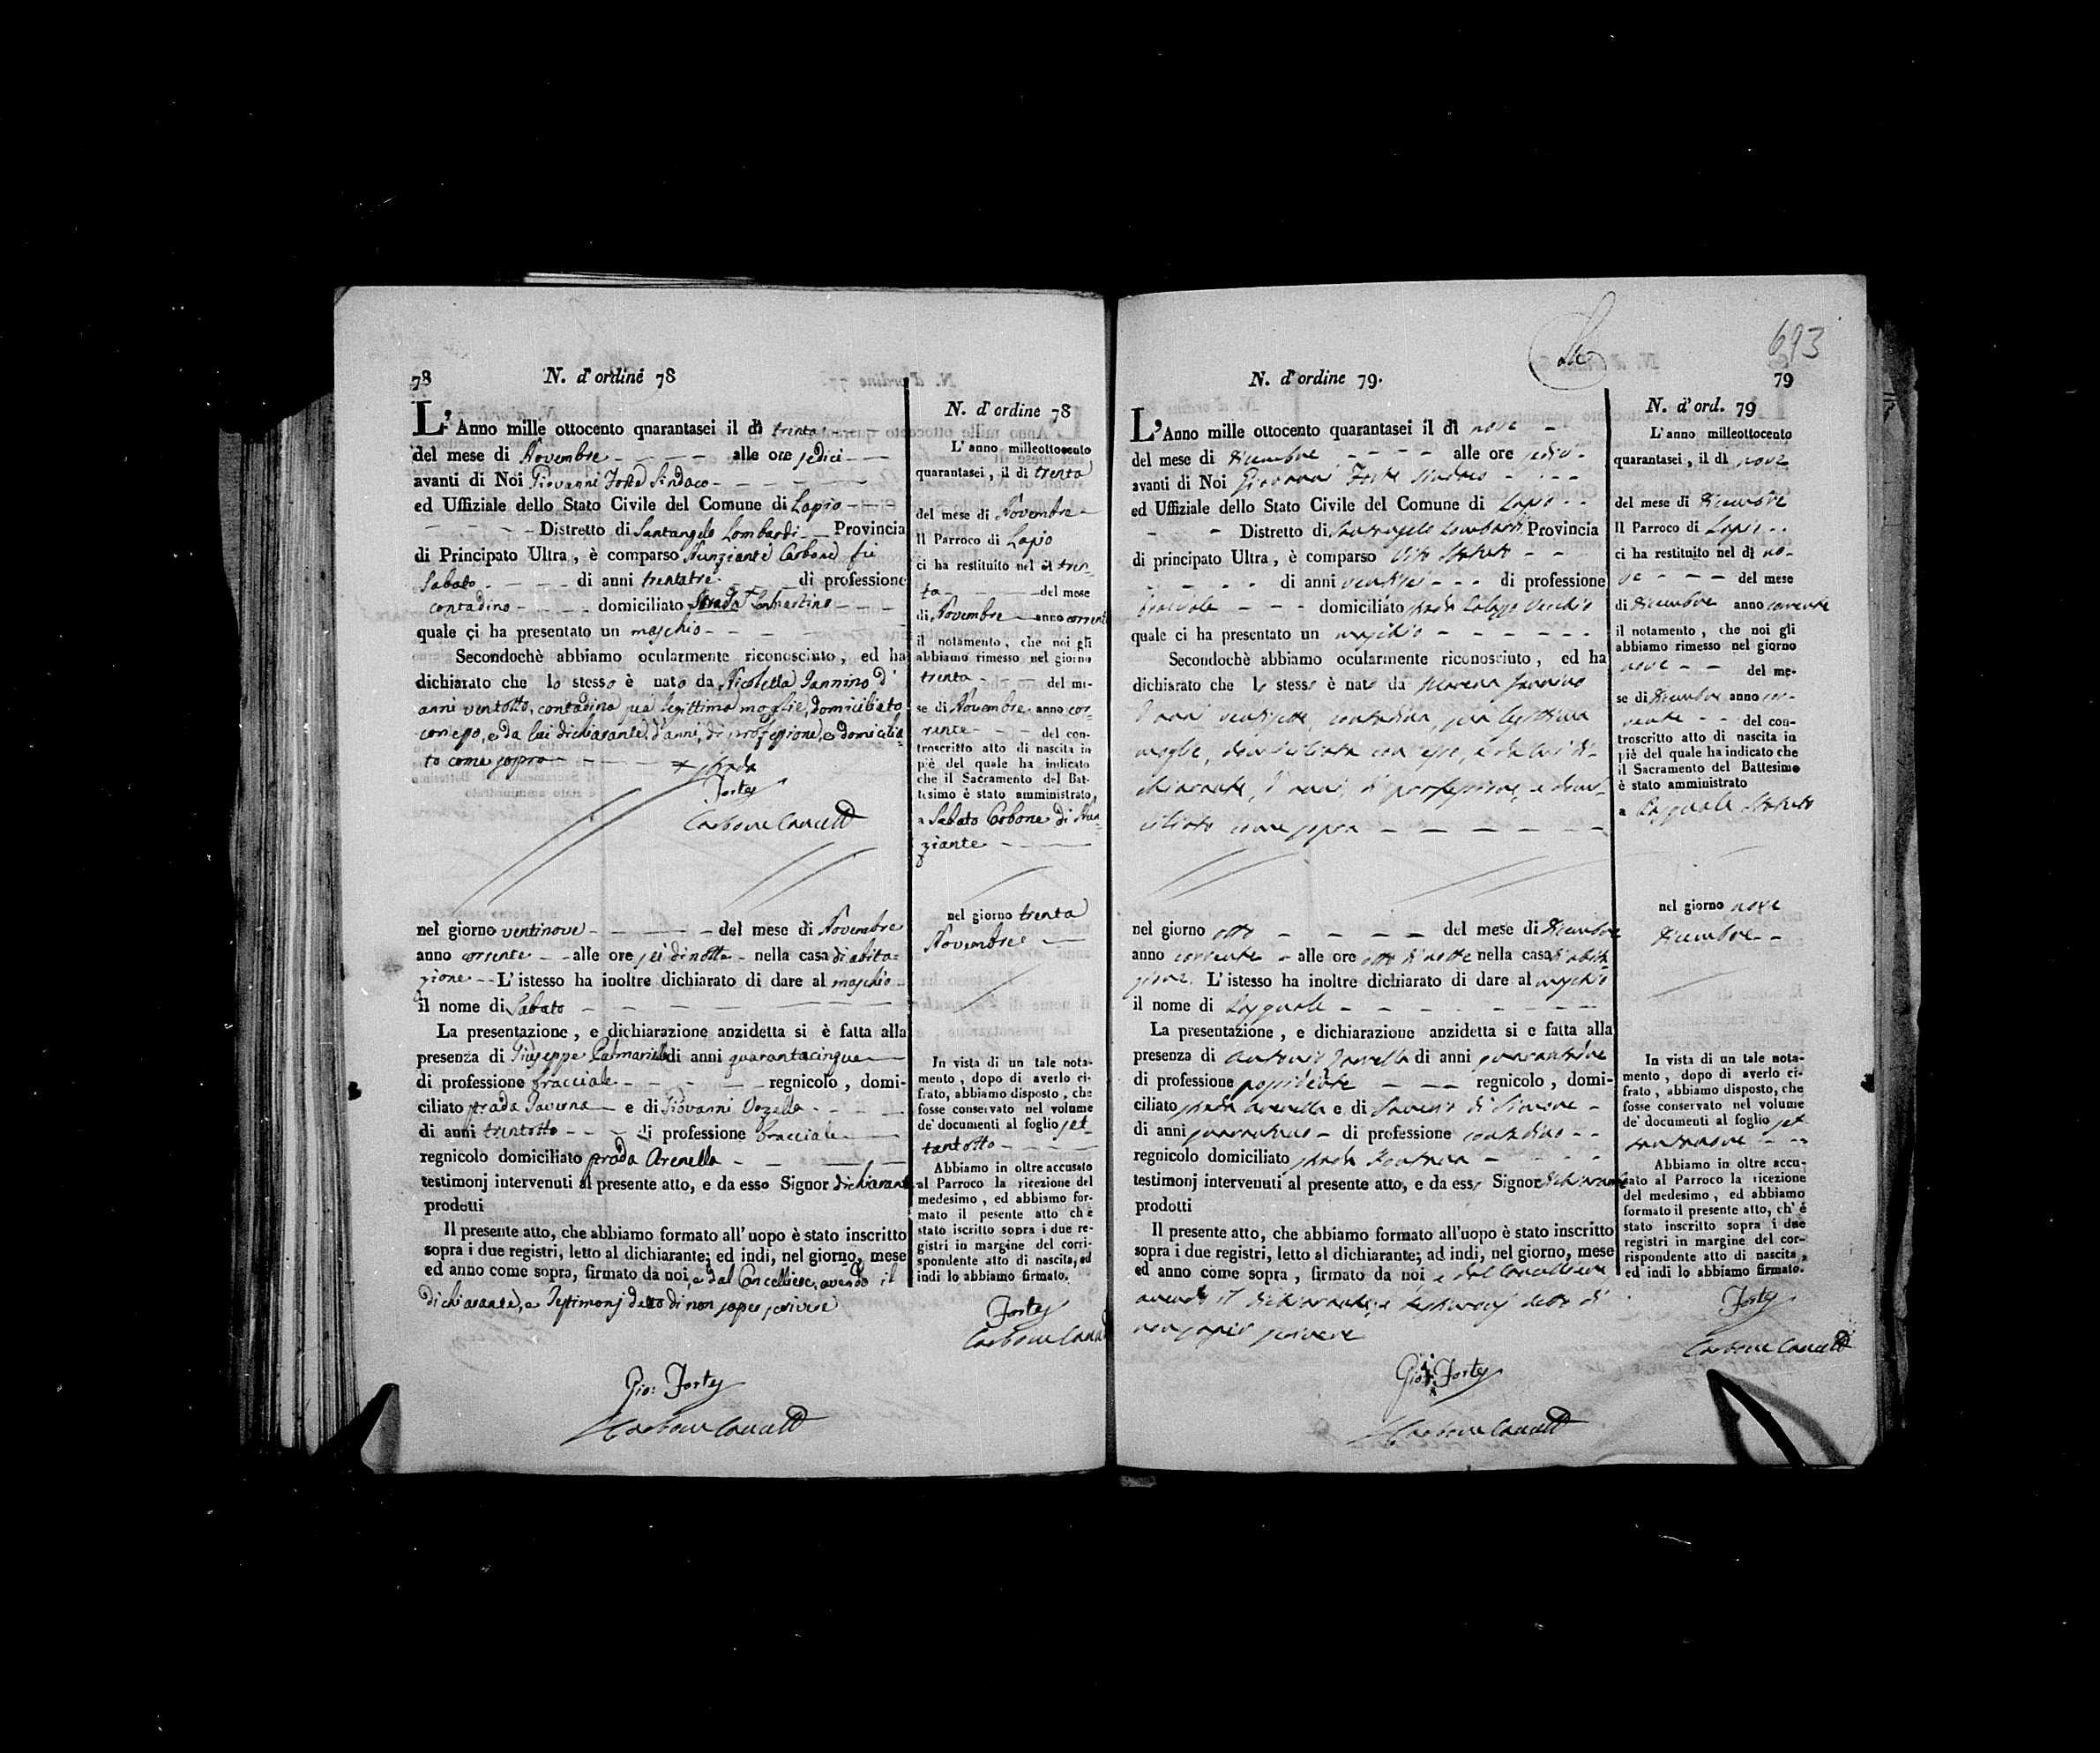 78
N. d'ordine 78
L'Anno mille ottocento quarantasei il dì trenta
del mese di Novembre alle ore sedici
avanti di Noi Giovanni Forte Sindaco
ed Uffiziale dello Stato Civile del Comune di Lapio
Distretto di Santangelo Lombardi Provincia
di Principato Ultra, è comparso Nunziante Carbone fu
Sabato di anni trentatre di professione
contadino domiciliato
quale ci ha presentato un maschio
Secondochè abbiamo ocularmente riconosciuto, ed ha
dichiarato che lo stesso è nato da Nicoletta Iannino d'
anni ventotto, contadina sua legittima moglie, domiciliato
con esso, e da lui dichiarante, d'anni, di professione, e domicilia-
to come sopra
+ strada
Forte
Carbone Cancell
nel giorno ventinove del mese di Novembre
anno corrente alle ore sei di notte nella casa di abita-
zione L'istesso ha inoltre dichiarato di dare al maschio
il nome di Sabato
La presentazione, e dichiarazione anzidetta si è fatta alla
presenza di Giuseppe di anni quarantacinque
di professione bracciale regnicolo, domi-
ciliato strada Taverna e di Giovanni
di anni trentotto di professione bracciale
regnicolo domiciliato strada Arenella
testimonj intervenuti al presente atto, e da esso Signor dichiarante
prodotti
Il presente atto, che abbiamo formato all'uopo è stato inscritto
sopra i due registri, letto al dichiarante; ed indi, nel giorno, mese
ed anno come sopra, firmato da noi, e dal Cancelliere, avendo il
dichiarante, e Testimonj detto di non saper scrivere
Gio: Forte
Carbone Cancell
N. d'ordine 78
L'anno milleottocento
quarantasei, il dì trenta
del mese di Novembre
Il Parroco di Lapio
ci ha restituito nel dì tren-
ta del mese
di Novembre anno corrente
il notamento, che noi gli
abbiamo rimesso nel giorno
trenta del me-
se di Novembre anno cor-
rente del con-
troscritto atto di nascita in
piè del quale ha indicato
che il Sacramento del Bat-
tesimo è stato amministrato,
a Sabato Carbone di Nun-
ziante
nel giorno trenta
Novembre
In vista di un tale nota-
mento, dopo di averlo ci-
frato, abbiamo disposto, che
fosse conservato nel volume
de' documenti al foglio set-
tantotto
Abbiamo in oltre accusato
al Parroco la ricezione del
medesimo, ed abbiamo for-
mato il pesente atto ch è
stato iscritto sopra i due re-
gistri in margine del corri-
spondente atto di nascita, ed
indi lo abbiamo firmato.
Forte
Carbone Cancell
693
79
N. d'ordine 79.
L'Anno mille ottocento quarantasei il dì nove
del mese di Dicembre alle ore sedici
avanti di Noi Giovanni Forte Sindaco
ed Uffiziale dello Stato Civile del Comune di Lapio
Distretto di Santangelo Lombardi Provincia
di principato Ultra, è comparso Vito
di anni ventisei di professione
bracciale domiciliato strada Palazzo Vecchio
quale ci ha presentato un maschio
Secondochè abbiamo ocularmente riconosciuto, ed ha
dichiarato che lo stesso è nato da Iannino
d'anni ventisette, contadina, sua legittima
moglie, domiciliata con esso, e da lui di-
chiarante, d'anni, di professione, e domi-
ciliato come sopra
nel giorno otto del mese di Dicembre
anno corrente alle ore otto di notte nella casa di abita-
zione. L'istesso ha inoltre dichiarato di dare al maschio
il nome di Pasquale
La presentazione, e dichiarazione anzidetta si e fatta alla
presenza di Antonio di anni
di professione possidente regnicolo, domi-
ciliato strada Arenella e di Saverio di Simone
di anni di professione contadino
regnicolo domiciliato strada Fontana
testimonj intervenuti al presente atto, e da esso Signor dichiarante
prodotti
Il presente atto, che abbiamo formato all'uopo è stato inscritto
sopra i due registri, letto al dichiarante; ad indi, nel giorno, mese
ed anno come sopra, firmato da noi e dal Cancelliere,
avendo il dichiarante, e testimonj detto di
non saper scrivere
Gio: Forte
Carbone Cancell
N. d'ord. 79
L'anno milleottocento
quarantasei, il dì nove
del mese di Dicembre
Il Parroco di Lapio
ci ha restituito nel dì no-
ve del mese
di Dicembre anno corrente
il notamento, che noi gli
abbiamo rimesso nel giorno
nove del me-
se di Dicembre anno cor-
rente del con-
troscritto atto di nascita in
piè del quale ha indicato che
il Sacramento del Battesimo
è stato amministrato
a Pasquale
nel giorno nove
Dicembre
In vista di un tale nota-
mento, dopo di averlo ci-
frato, abbiamo disposto, che
fosse conservato nel volume
de' documenti al foglio set-
tantanove
Abbiamo in oltre accu-
sato al Parroco la ricezione
del medesimo, ed abbiamo
formato il presente atto, ch' è
stato inscritto sopra i due
registri in margine del cor-
rispondente atto di nascita,
ed indi lo abbiamo firmato.
Forte
Carbone Cancell